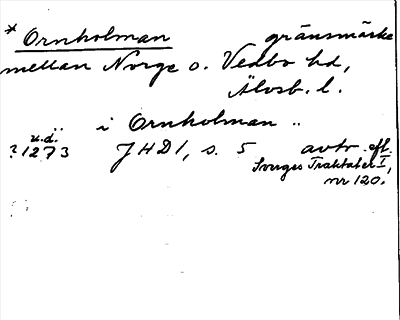 * Ornholman gränsmärke
mellan Norge o. Vedbo hd,
Älvsb. l.
i Ornholman ..
u.d.
? 1273 JHD1, s. 5 avtr. eft.
Sveriges Traktater I,
nr 120.